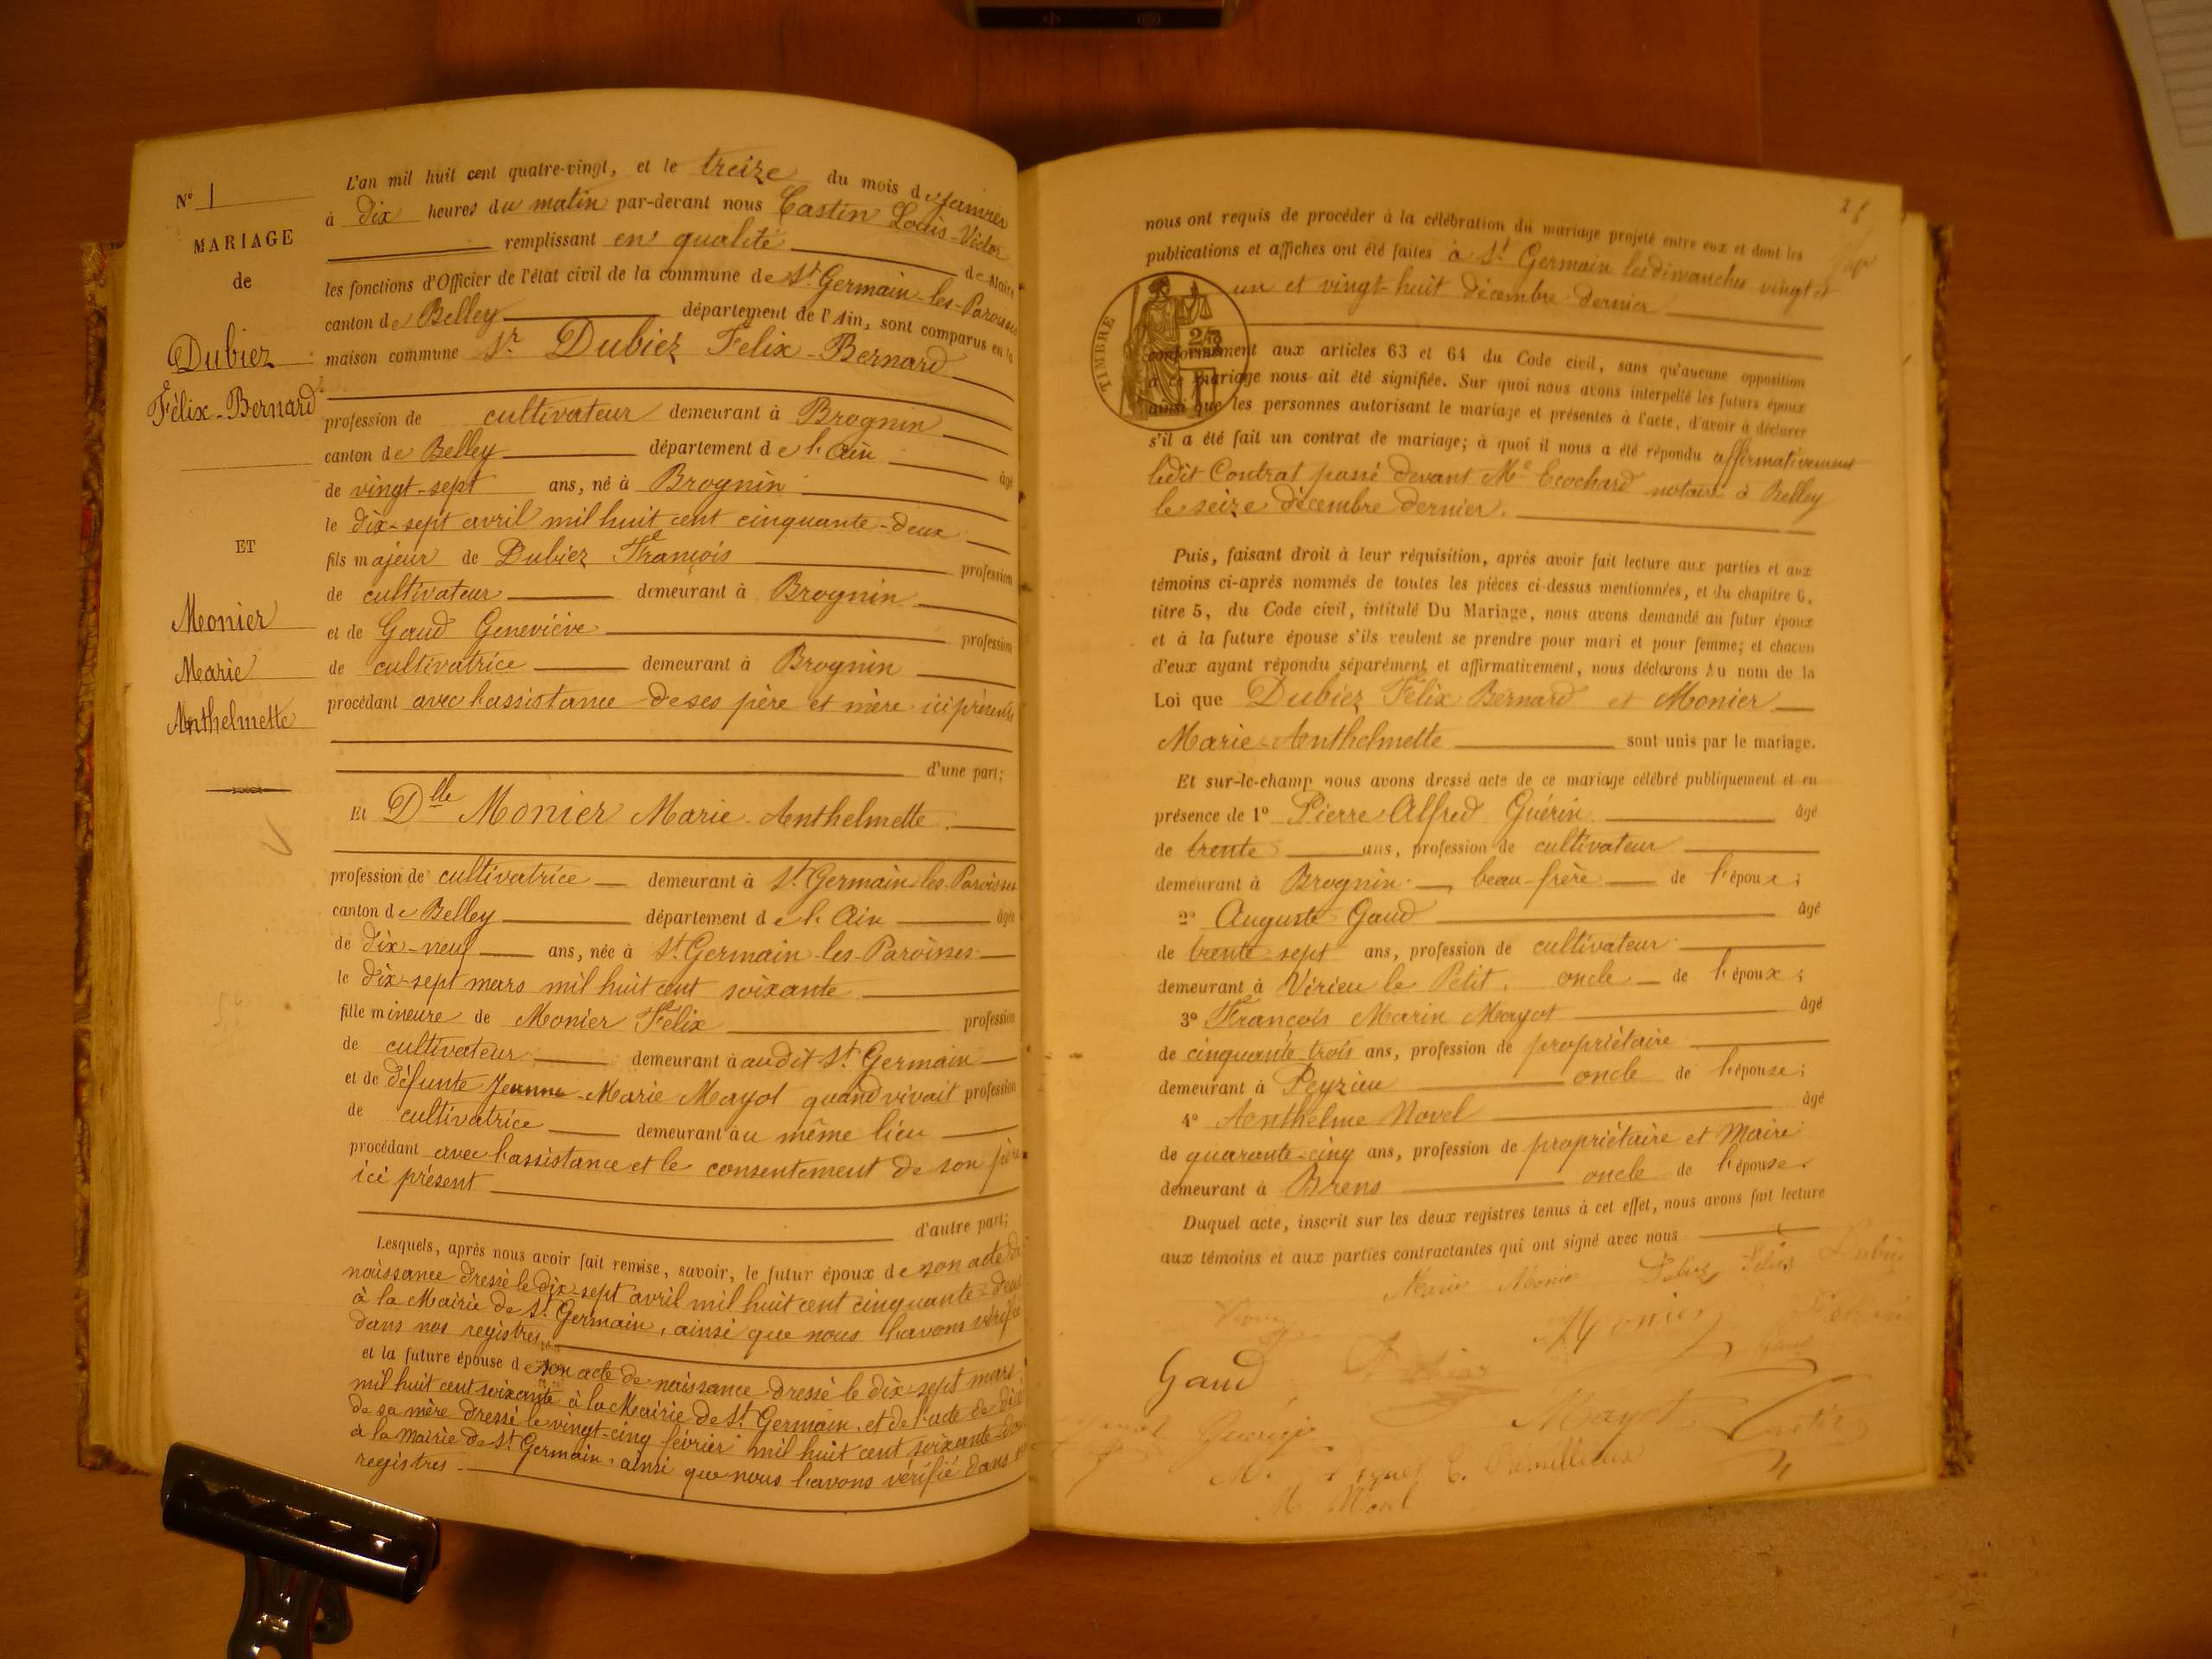 N° 1
MARIAGE
de
Dubiez
Félix-Bernard
ET
Monier
Marie
Anthelmette
L'an mil huit cent quatre-vingt, et le treize du mois de janvier
à dix heures du matin par-devant nous Castin Louis-Victor
remplissant en qualité de Maire
les fonctions d'Officier de l'état civil de la commune de St Germain-les-Paroisses
canton de Belley département de l'Ain, sont comparus en la
maison commune Sr Dubiez Félix-Bernard
profession de cultivateur demeurant à Brognin
canton de Belley département de l'Ain âgé
de vingt-sept ans, né à Brognin
le dix-sept avril mil huit cent cinquante-deux
fils majeur de Dubiez François profession
de cultivateur demeurant à Brognin
et de Gaud Geneviève profession
de cultivatrice demeurant à Brognin
procédant avec l'assistance de ses père et mère ici présents
d'une part;
Et Dlle Monier Marie-Anthelmette
profession de cultivatrice demeurant à St Germain-les-Paroisses
canton de Belley département de l'Ain âgée
de dix-neuf ans, née à St Germain-les-Paroisses
le dix-sept mars mil huit cent soixante
fille mineure de Monier Félix profession
de cultivateur demeurant à audit St Germain
et de défunte Jeanne-Marie Mayot quand vivait profession
de cultivatrice demeurant au même lieu
procédant avec l'assistance et le consentement de son père
ici présent
d'autre part;
Lesquels, après nous avoir fait remise, savoir, le futur époux de son acte de
naissance dressé le dix-sept avril mil huit cent cinquante-deux
à la Mairie de St Germain, ainsi que nous l'avons vérifié
dans nos registres
et la future épouse de son acte de naissance dressé le dix-sept mars
mil huit cent soixante à la Mairie de St Germain, et de l'acte de décès
de sa mère dressé le vingt-cinq février mil huit cent soixante-
à la Mairie de St Germain, ainsi que nous l'avons vérifié dans
registres
nous ont requis de procéder à la célébration du mariage projeté entre eux et dont les
publications et affiches ont été faites à St Germain les dimanches vingt et
un et vingt-huit décembre dernier
TIMBRE
conformément aux articles 63 et 64 du Code civil, sans qu'aucune opposition
à ce mariage nous ait été signifiée. Sur quoi nous avons interpellé les futurs époux
ainsi que les personnes autorisant le mariage et présentes à l'acte, d'avoir à déclarer
s'il a été fait un contrat de mariage; à quoi il nous a été répondu affirmativement
ledit Contrat passé devant Me Ecochard notaire à Belley
le seize décembre dernier.
Puis, faisant droit à leur réquisition, après avoir fait lecture aux parties et aux
témoins ci-après nommés de toutes les pièces ci-dessus mentionnées, et du chapitre 6,
titre 5, du Code civil, intitulé Du Mariage, nous avons demandé au futur époux
et à la future épouse s'ils veulent se prendre pour mari et pour femme; et chacun
d'eux ayant répondu séparément et affirmativement, nous déclarons Au nom de la
Loi que Dubiez Félix Bernard et Monier
Marie-Anthelmette sont unis par le mariage.
Et sur-le-champ nous avons dressé acte de ce mariage célébré publiquement et en
présence de 1° Pierre Alfred Guérin âgé
de trente ans, profession de cultivateur
demeurant à Brognin beau-frère de l'époux;
2° Auguste Gaud âgé
de trente sept ans, profession de cultivateur
demeurant à Virieu le Petit, oncle de l'époux;
3° François Marin Mayot âgé
de cinquante-trois ans, profession de propriétaire
demeurant à Peyzieu oncle de l'épouse;
4° Anthelme Novel âgé
de quarante-cinq ans, profession de propriétaire et Maire
demeurant à Brens oncle de l'épouse.
Duquel acte, inscrit sur les deux registres tenus à cet effet, nous avons fait lecture
aux témoins et aux parties contractantes qui ont signé avec nous
Marie Monier Dubiez Félix
Monier
Gaud
Mayot Castin